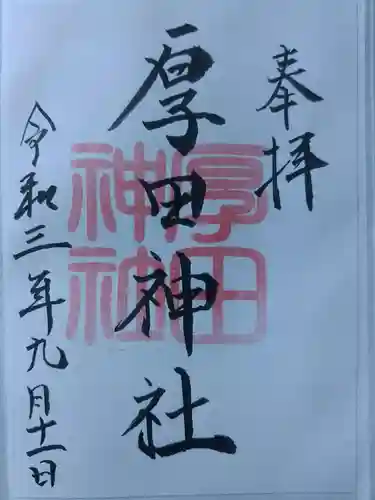 奉拝
厚田神社
厚田
神社
令和三年九月十一日